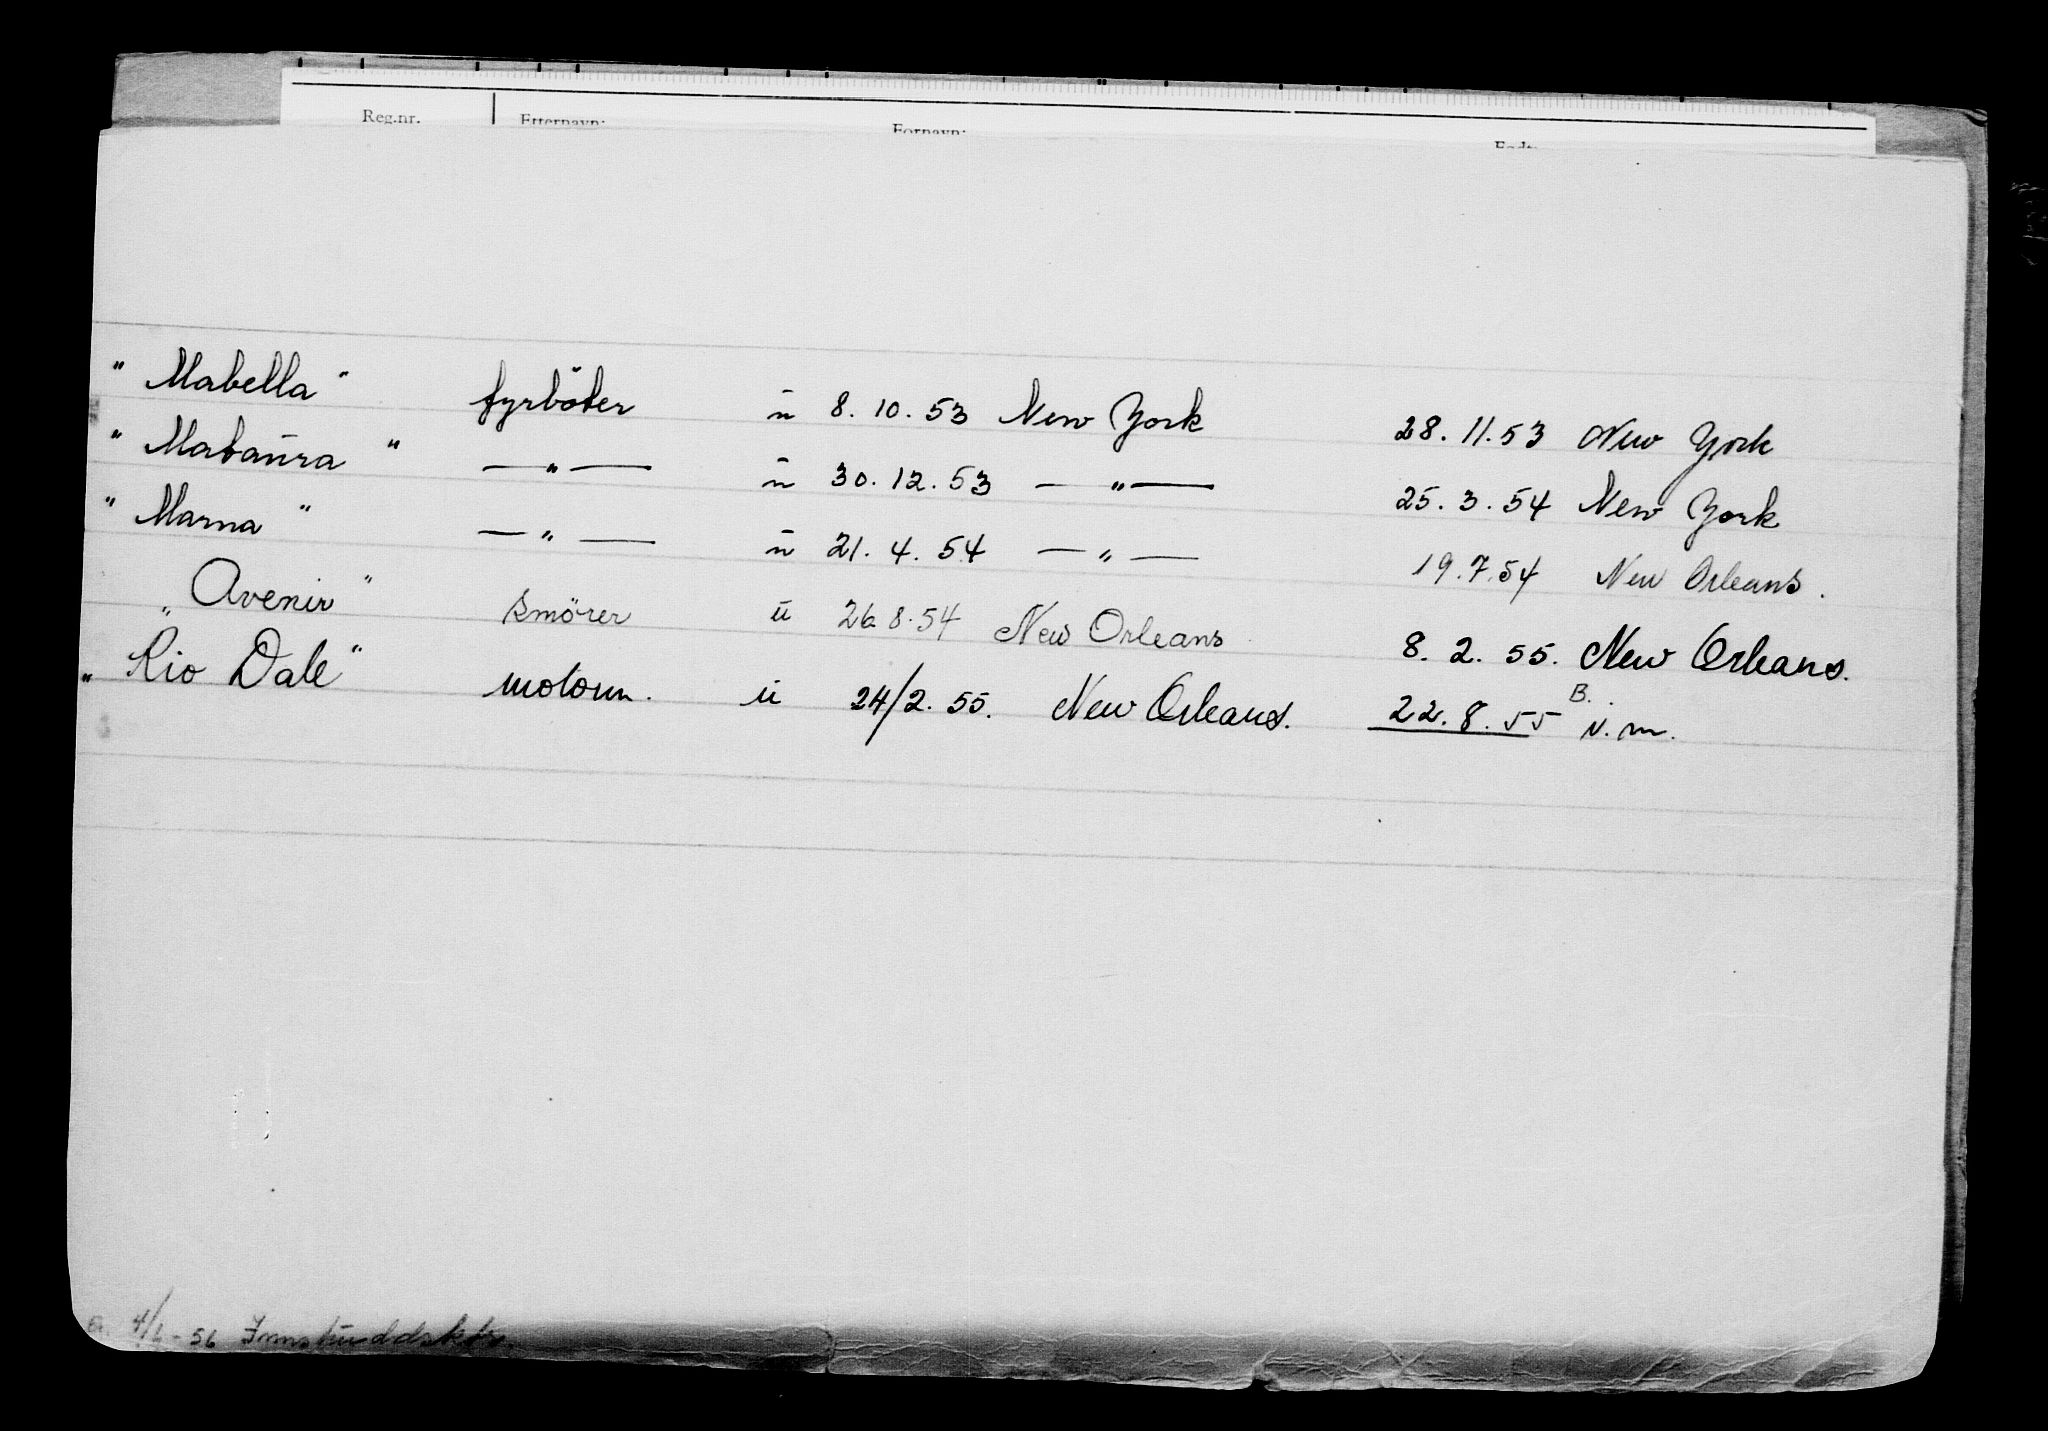 Reg.nr. Etternavn: Fornavn: Født:
"Mabella" fyrböter ū 8.10.53 New York 28.11.53 New York
"Mabaūra" —"— ū 30.12.53 —"— 25.3.54 New York
"Marna" —"— ū 21.4.54 —"— 19.7.54 New Orleans.
"Avenir" smörer ū 26.8.54 New Orleans 8.2.55. New Orleans.
"Rio Dale" motorm. ū 24/2.55. New Orleans. 22.8.55 B. v.m.
4/6-56